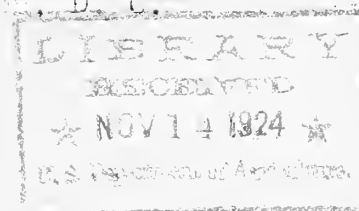 D. C.
LIBRARY
RECEIVED
★ NOV 14 1924 ★
U. S. Department of Agriculture.